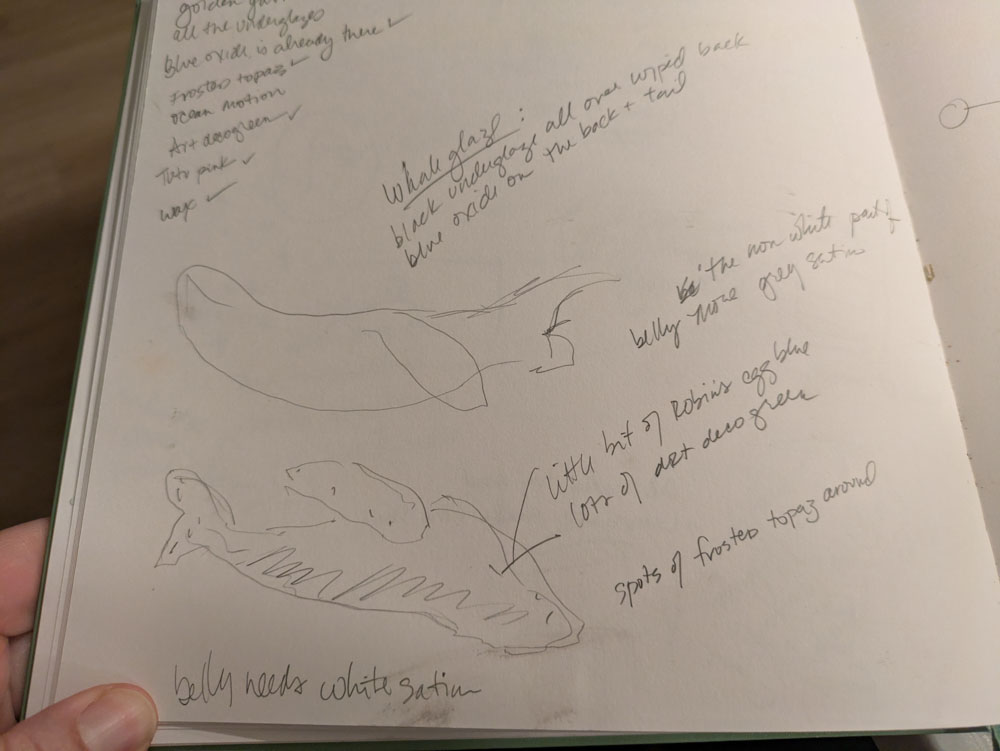 golden
all the underglazes
blue oxide is already there ✓
Frosted topaz ✓
ocean motion
Art deco green ✓
Tutu pink ✓
wax ✓
Whale glaze:
black underglaze all over wiped back
blue oxide on the back + tail
the non white part of
belly more grey satin
little bit of Robin's egg blue
lots of art deco green
spots of frosted topaz around
belly needs white satin